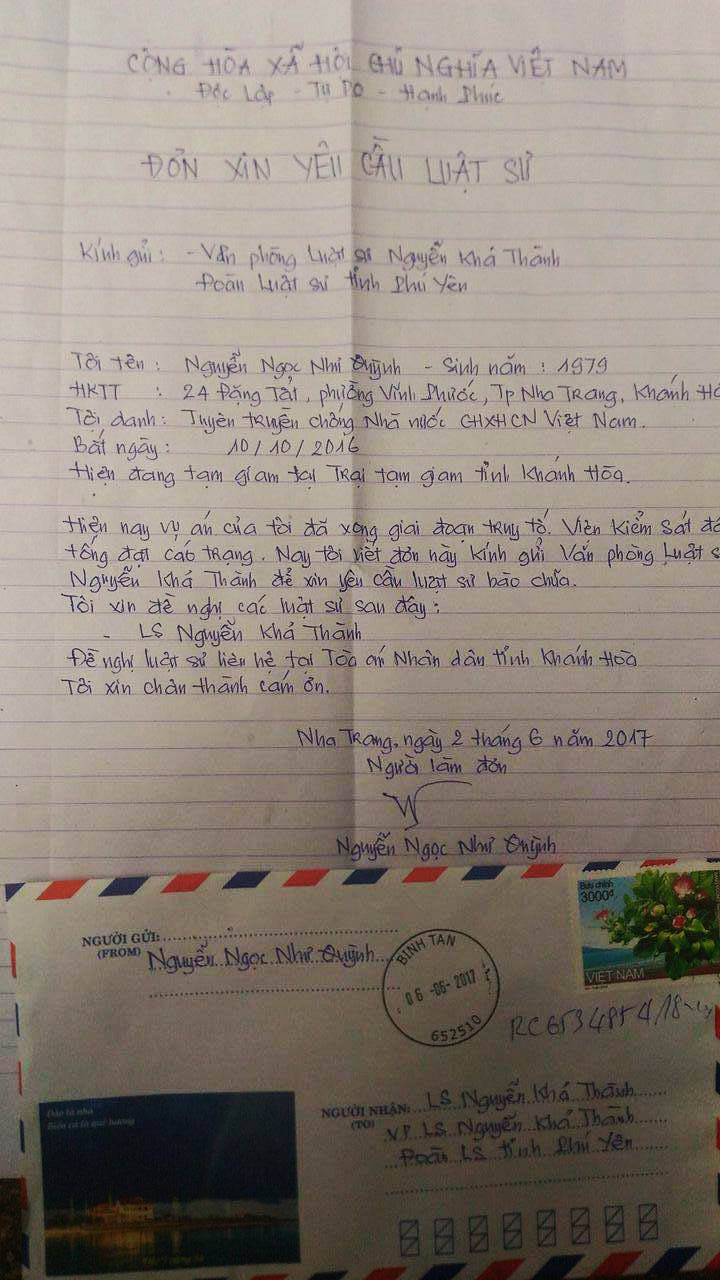 CỘNG HÒA XÃ HỘI CHỦ NGHĨA VIỆT NAM
Độc Lập - Tự Do - Hạnh Phúc
ĐƠN XIN YÊU CẦU LUẬT SƯ
Kính gửi: - Văn phòng Luật sư Nguyễn Khả Thành
Đoàn Luật sư tỉnh Phú Yên
Tôi tên : Nguyễn Ngọc Như Quỳnh - Sinh năm : 1979
HKTT : 24 Đặng Tất, phường Vĩnh Phước, Tp Nha Trang, Khánh Hò
Tội danh: Tuyên truyền chống Nhà nước CHXHCN Việt Nam.
Bắt ngày: 10/10/2016
Hiện đang tạm giam tại Trại tạm giam tỉnh Khánh Hòa.
Hiện nay vụ án của tôi đã xong giai đoạn truy tố. Viện Kiểm Sát đã
tống đạt cáo trạng. Nay tôi viết đơn này kính gửi Văn phòng Luật s
Nguyễn Khả Thành để xin yêu cầu luật sư bào chữa.
Tôi xin đề nghị các luật sư sau đây:
- LS Nguyễn Khả Thành
Đề nghị luật sư liên hệ tại Tòa án Nhân dân tỉnh Khánh Hòa
Tôi xin chân thành cám ơn.
Nha Trang, ngày 2 tháng 6 năm 2017
Người làm đơn
Nguyễn Ngọc Như Quỳnh
Bưu chính
3000đ
VIỆT NAM
NGƯỜI GỬI:
(FROM) Nguyễn Ngọc Như Quỳnh
BÌNH TÂN
06-06-2017
652510
Đảo là nhà
Biển cả là quê hương
NGƯỜI NHẬN: LS Nguyễn Khả Thành
(TO) VP LS Nguyễn Khả Thành
Đoàn LS tỉnh Phú Yên